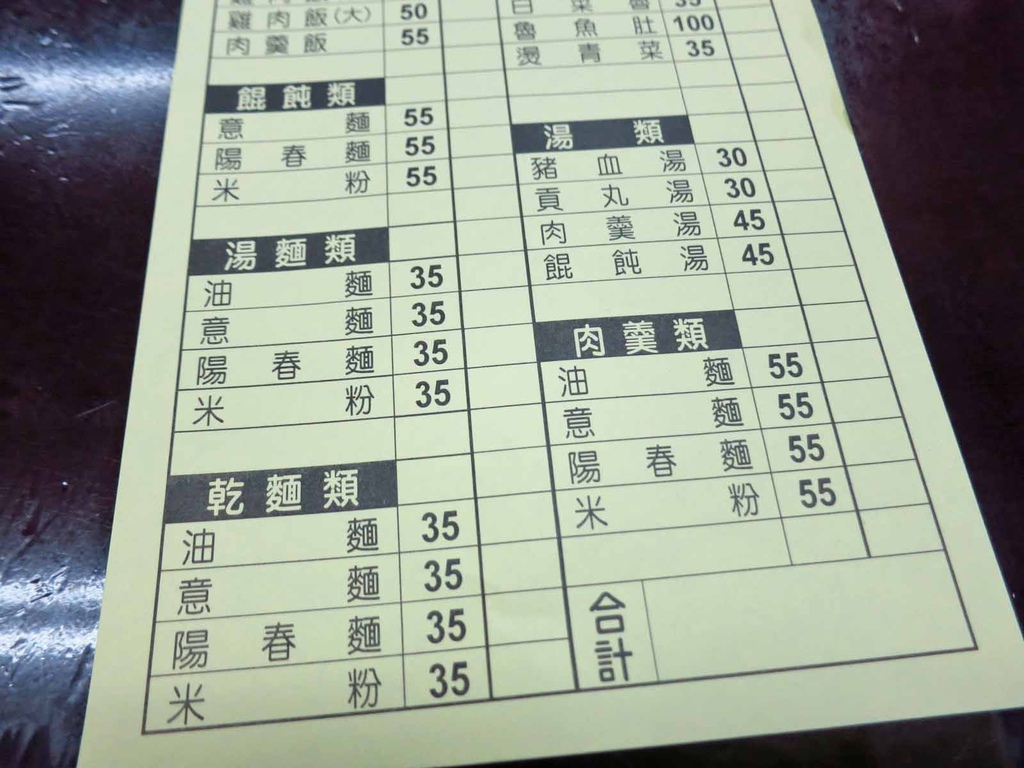 雞肉飯(大) 50
肉羹飯 55
餛飩類
意麵 55
陽春麵 55
米粉 55
湯麵類
油麵 35
意麵 35
陽春麵 35
米粉 35
乾麵類
油麵 35
意麵 35
陽春麵 35
米粉 35
白菜魯 35
魯魚肚 100
燙青菜 35
湯類
豬血湯 30
貢丸湯 30
肉羹湯 45
餛飩湯 45
肉羹類
油麵 55
意麵 55
陽春麵 55
米粉 55
合計